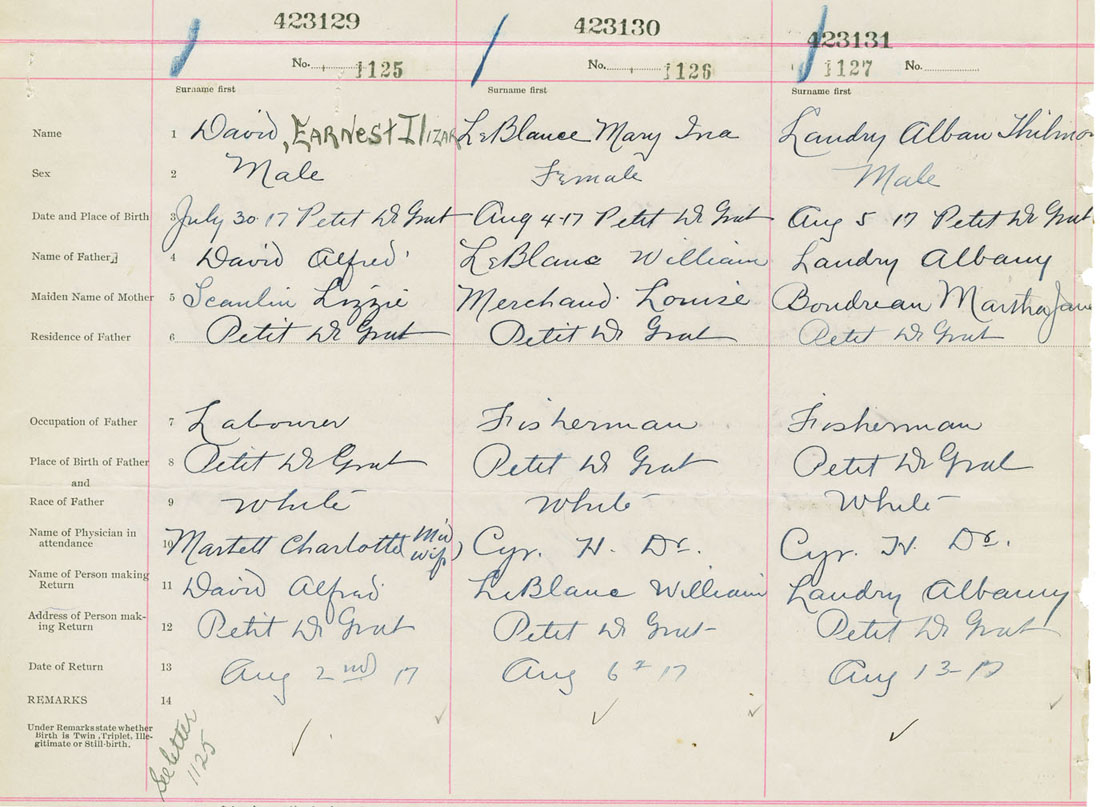 423129 423130 423131
No. 1125 No. 1126 1127 No.
Surname first Surname first Surname first
Name 1 David, EARNEST IlizAR LeBlance Mary Ina Landry Alban Thilmo
Sex 2 Male Female Male
Date and Place of Birth 3 July 30-17 Petit De Grat Aug 4-17 Petit De Grat Aug 5 17 Petit De Grat
Name of Father 4 David Alfred LeBlanc William Landry Albany
Maiden Name of Mother 5 Scanlin Lizzie Merchand Louise Boudreau Martha Jane
Residence of Father 6 Petit De Grat Petit De Grat Petit De Grat
Occupation of Father 7 Labourer Fisherman Fisherman
Place of Birth of Father 8 Petit De Grat Petit De Grat Petit De Grat
and
Race of Father 9 White White White
Name of Physician in
attendance 10 Martell Charlotte (Mid wife) Cyr. H. Dr. Cyr. H. Dr.
Name of Person making
Return 11 David Alfred LeBlanc William Landry Albany
Address of Person mak-
ing Return 12 Petit De Grat Petit De Grat Petit De Grat
Date of Return 13 Aug 2nd 17 Aug 6 17 Aug 13-17
REMARKS 14
Under Remarks state whether
Birth is Twin, Triplet, Ille-
gitimate or Still-birth.
See letter
1125